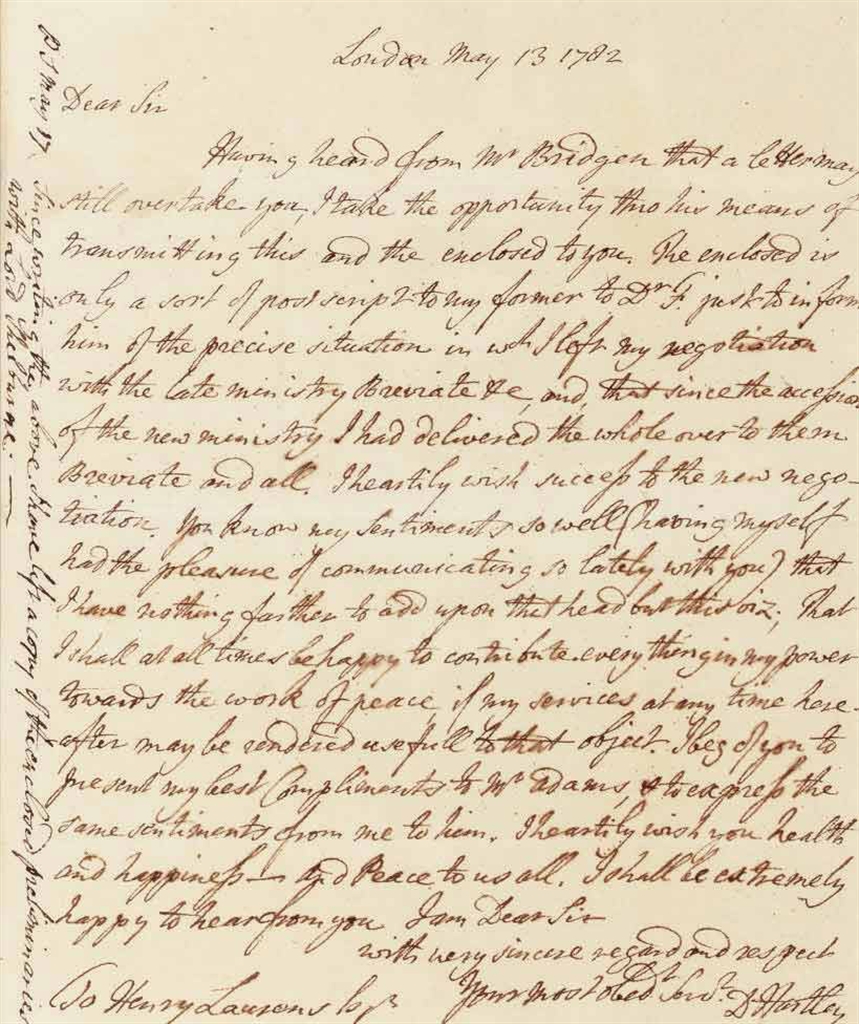 London May 13 1782
Dear Sir
Having heard from Mr Bridgen that a letter may
still overtake you, I take the opportunity thro his means of
transmitting this and the enclosed to you. The enclosed is
only a sort of postscript to my former to Dr F. just to inform
him of the precise situation in wch I left my negotiation
with the late ministry Breviate &c, and, that since the accession
of the new ministry I had delivered the whole over to them
Breviate and all. I heartily wish success to the new nego-
tiation. You know my sentiments so well (having myself
had the pleasure of communicating so lately with you) that
I have nothing farther to add upon that head but this viz; That
I shall at all times be happy to contribute every thing in my power
towards the work of peace, if my services at any time here-
after may be rendered usefull to that object. I beg of you to
present my best Compliments to Mr Adams, & to express the
same sentiments from me to him. I heartily wish you health
and happiness — and Peace to us all. I shall be extremely
happy to hear from you I am Dear Sir
with very sincere regard and respect
Your most obedt Servt.
D Hartley
To Henry Laurens Esqr
P S May 17. Since writing the above I have left a copy of the enclosed preliminaries
with Lord Shelburne. —